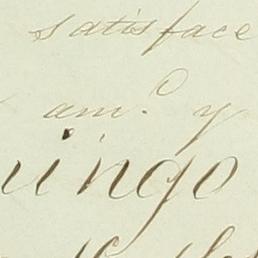 satisface
am.º y
ingo